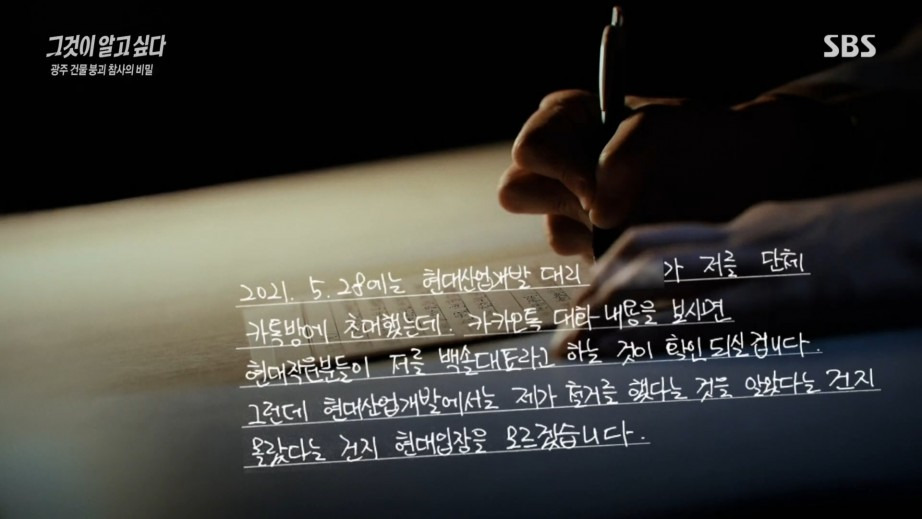 그것이 알고 싶다
광주 건물 붕괴 참사의 비밀
SBS
2021. 5. 28에는 현대산업개발 대리 가 저를 단체
카톡방에 초대했는데. 카카오톡 대화 내용을 보시면
현대직원분들이 저를 백솔대표라고 하는 것이 확인되실 겁니다.
그런데 현대산업개발에서는 제가 철거를 했다는 것을 알았다는 건지
몰랐다는 건지 현대입장을 모르겠습니다.